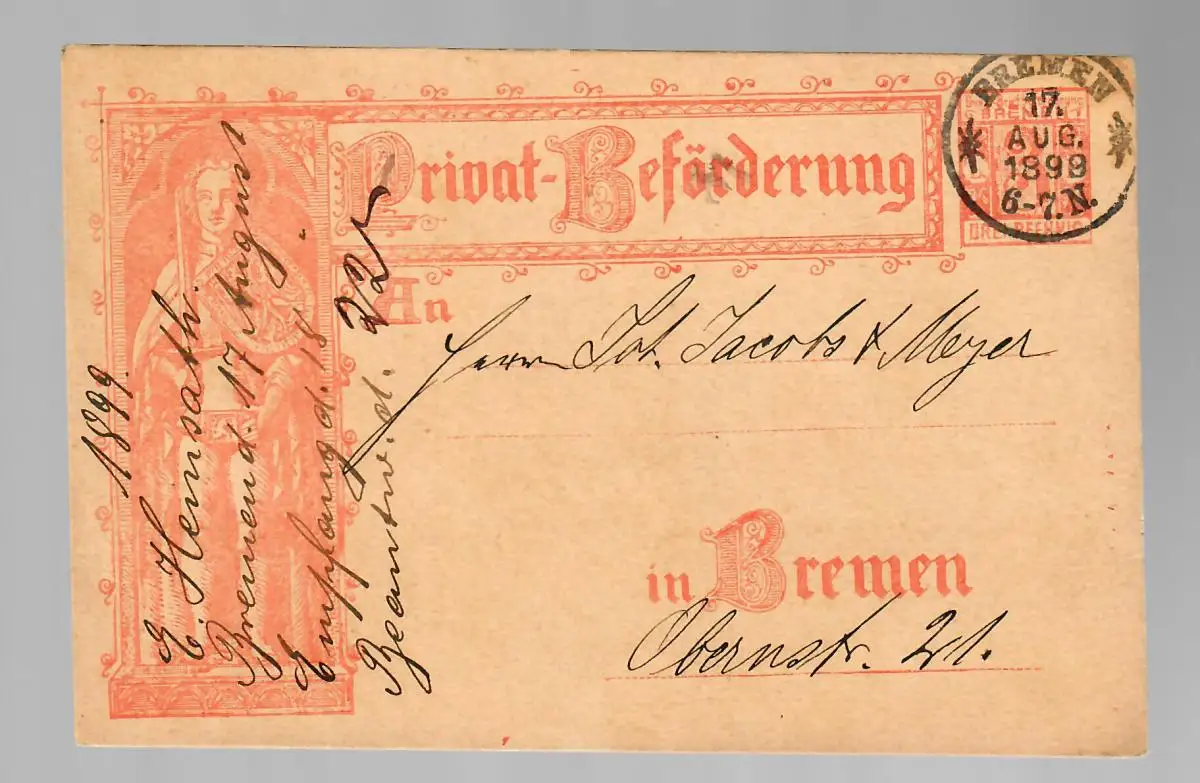 Privat-Beförderung
BREMEN
17.
AUG.
1899
6-7.N.
DREI PFENNIG
An
Herrn Joh. Jacobs & Meyer
in Bremen
Obernstr. 21.
1899.
E. Heinsath.
Bremen d. 17 August
Empfang d. 18
Beantw. d. 22